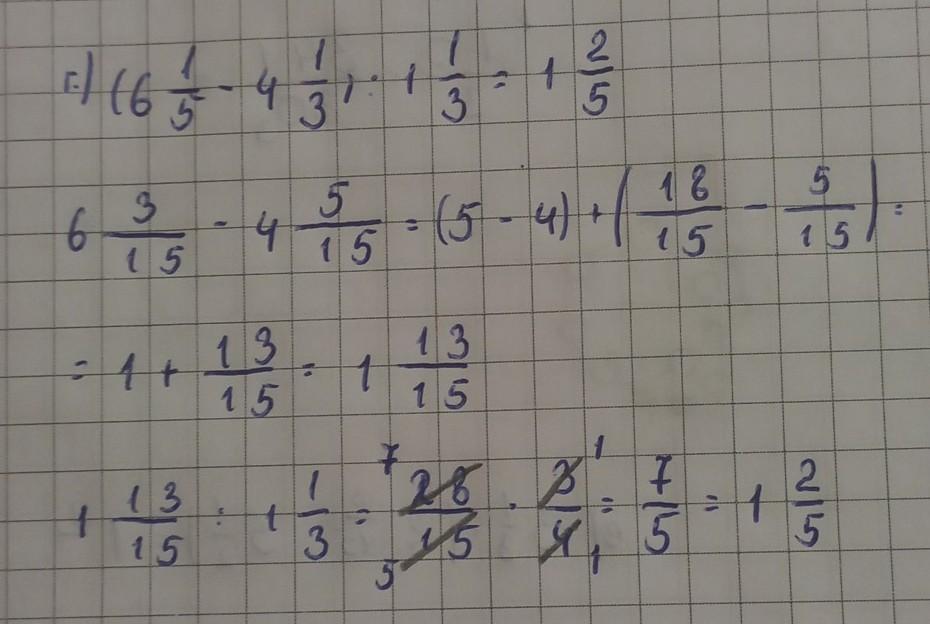 г) (6 1/5 - 4 1/3) : 1 1/3 = 1 2/5
6 3/15 - 4 5/15 = (5 - 4) + (18/15 - 5/15) =
= 1 + 13/15 = 1 13/15
1 13/15 : 1 1/3 = 7 28/15 5 · 3/4 1 1 = 7/5 = 1 2/5